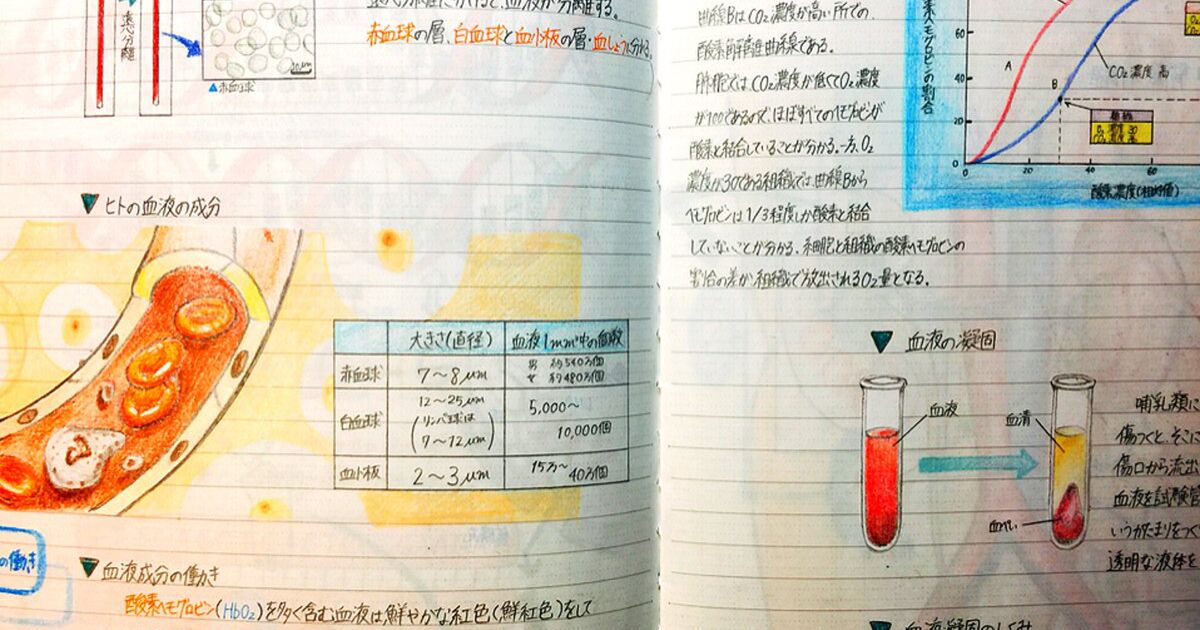 遠心分離
10μm
▲赤血球
遠心分離にかけて、血液が分離する。
赤血球の層、白血球と血小板の層・血しょうに分かれる。
▼ヒトの血液の成分
大きさ(直径) 血液1mm³中の個数
赤血球 7〜8μm 男 約540万個
女 約480万個
白血球 12〜25μm
(リンパ球は
7〜12μm)
5,000〜
10,000個
血小板 2〜3μm 15万〜
40万個
の働き
▼血液成分の働き
酸素ヘモグロビン(HbO₂)を多く含む血液は鮮やかな紅色(鮮紅色)をして
曲線BはCO₂濃度が高い所での、
酸素解離曲線である。
肺胞ではCO₂濃度が低くてO₂濃度
が100であるので、ほぼすべてのヘモグロビンが
酸素と結合していることが分かる。一方、O₂
濃度が30である組織では、曲線Bから
ヘモグロビンは1/3程度しか酸素と結合
していないことが分かる。細胞と組織の酸素ヘモグロビンの
割合の差が組織で放出されるO₂量となる。
素ヘモグロビンの割合
60
40
20
0
A
B
CO₂濃度 高
組織
O₂濃度 30
CO₂濃度 高
0 20 40 60
酸素濃度(相対値)
▼血液の凝固
血液
血清
血ぺい
哺乳類に
傷つくと、そこに
傷口から流出
血液を試験管
いうかたまりをつく
透明な液体を
▼血液凝固のしくみ